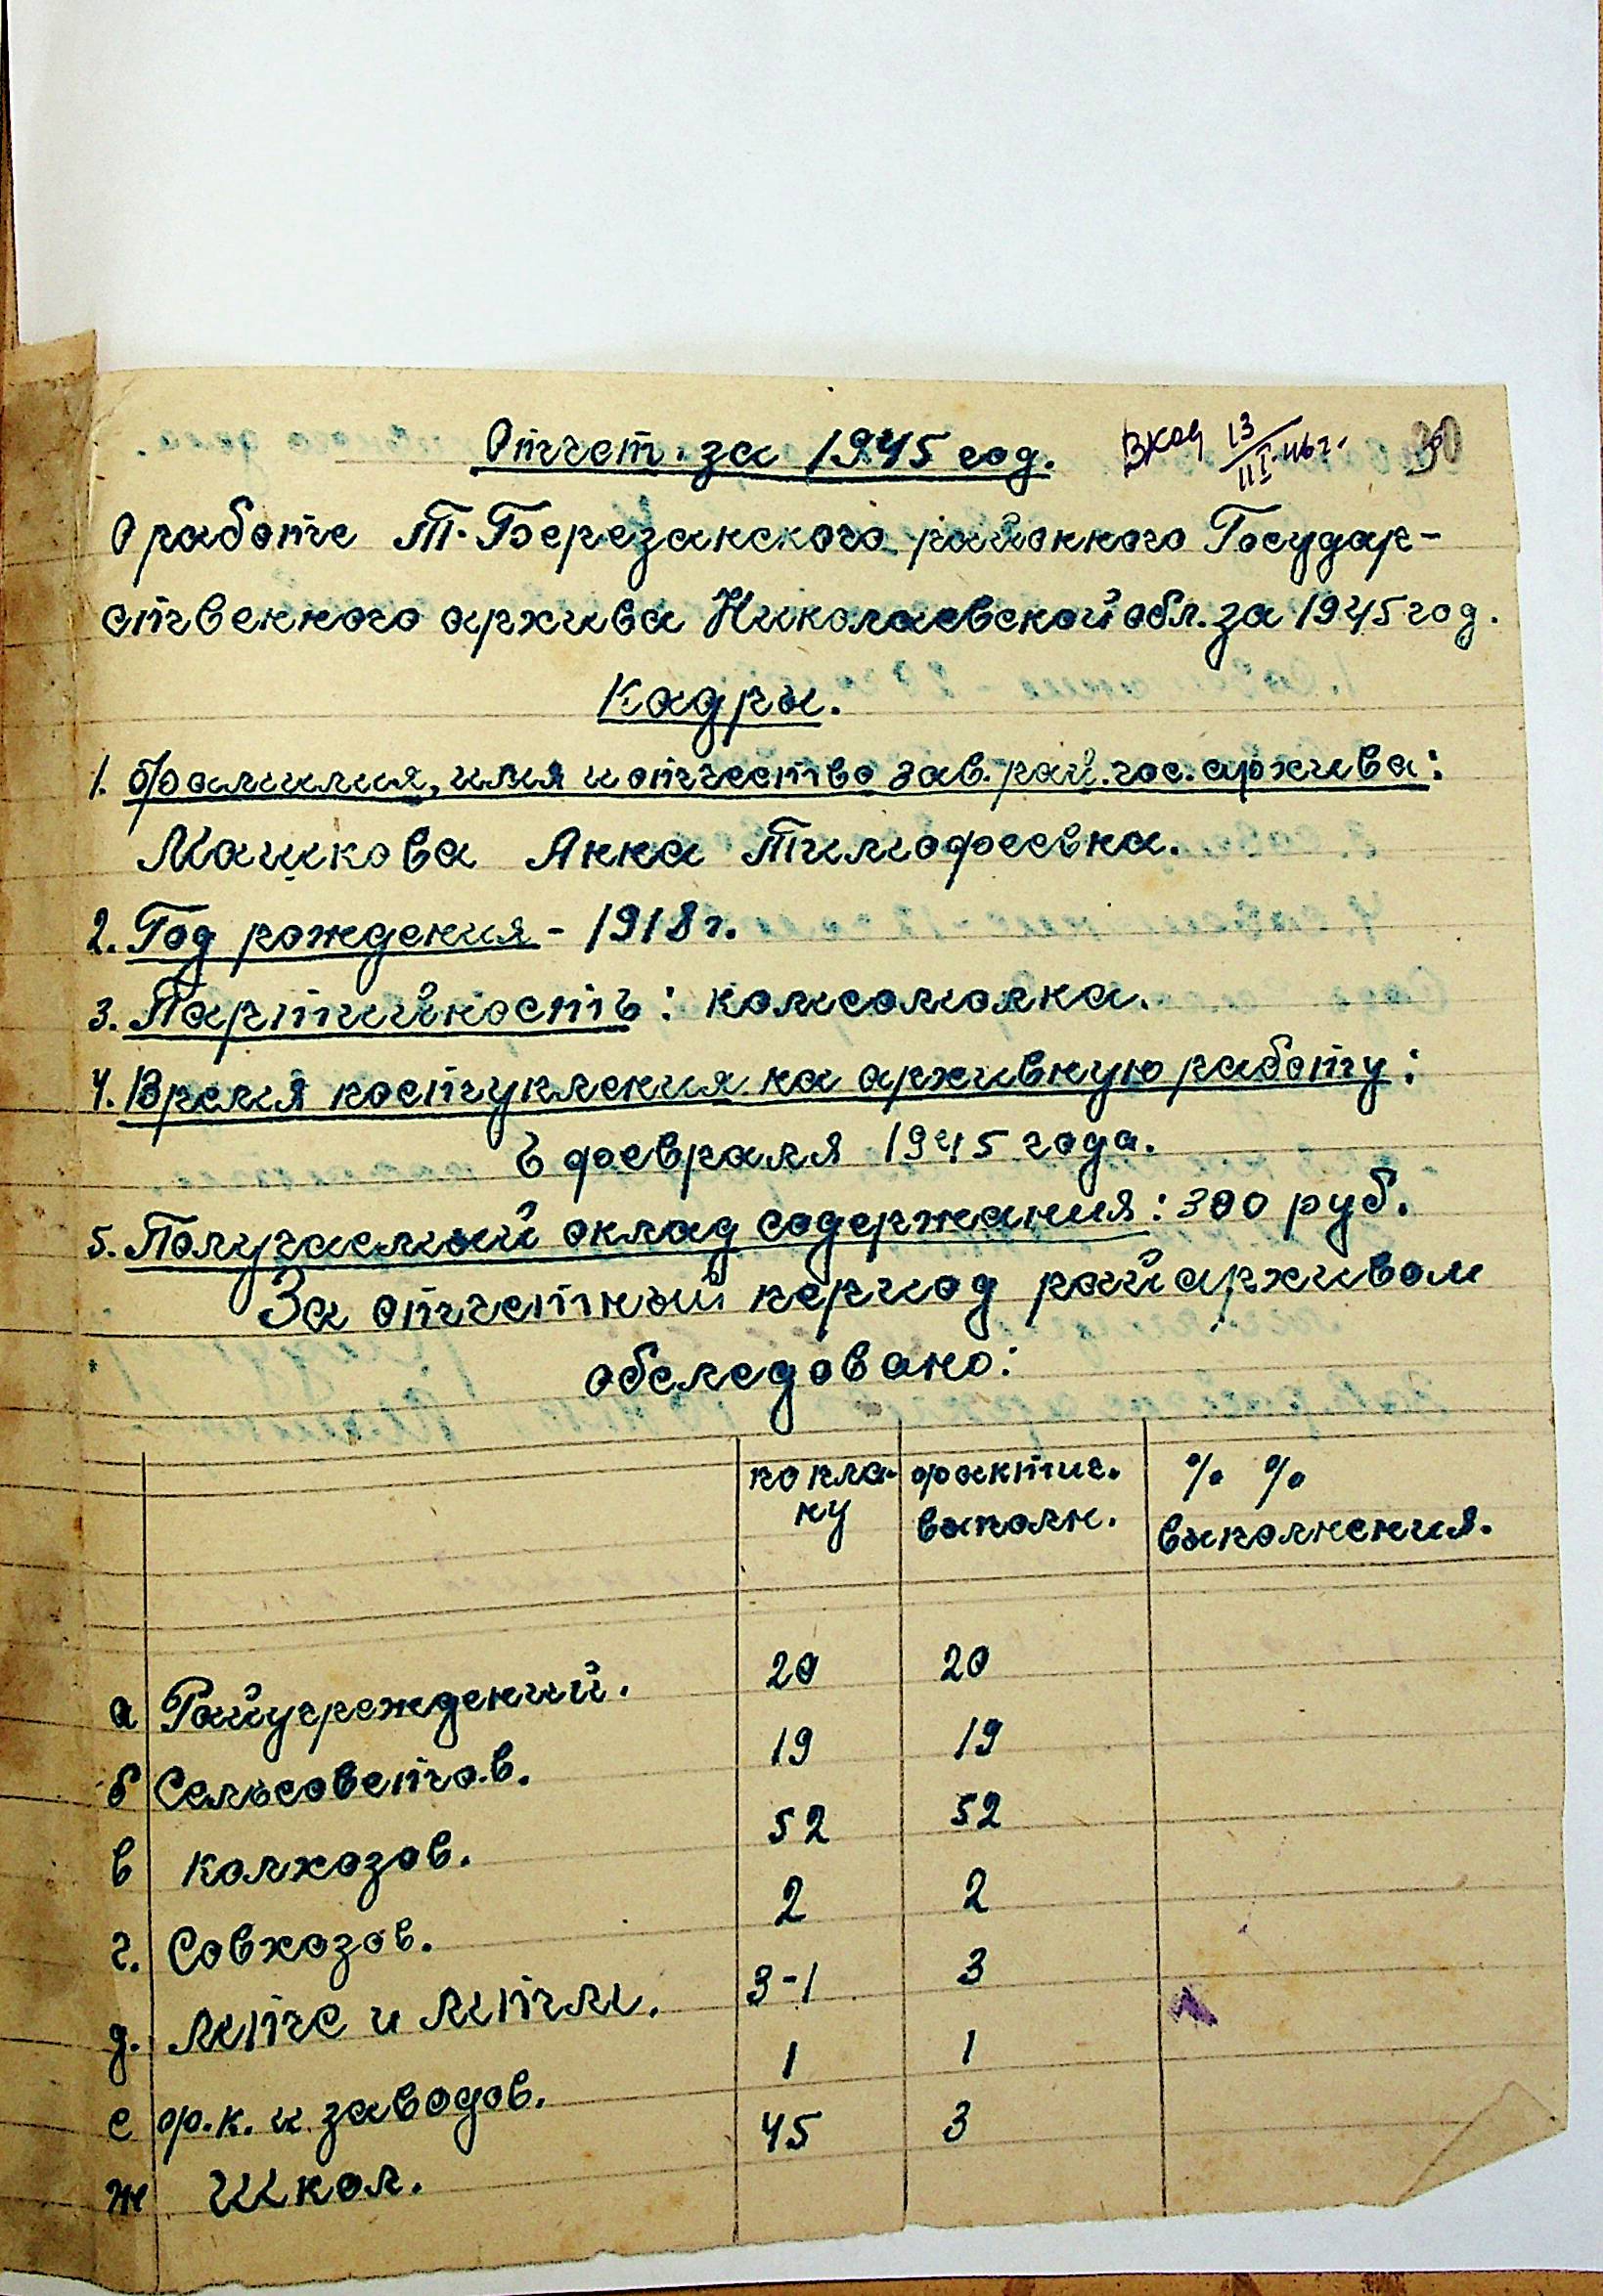 Отчет за 1945 год.
Вход 13/III 46 г.
30
О работе Т.Березанского районного Государ-
ственного архива Николаевской обл. за 1945 год.
Кадры.
1. Фамилия, имя и отчество зав. рай. гос. архива:
Машкова Анна Тимофеевна.
2. Год рождения - 1918 г.
3. Партийность: комсомолка.
4. Время поступления на архивную работу:
6 февраля 1945 года.
5. Получаемый оклад содержания: 300 руб.
За отчетный период райархивом
обследовано:
по пла- фактич. % %
ну выполн. выполнения.
а Райучреждений. 20 20
б Сельсоветов. 19 19
в Колхозов. 52 52
г. Совхозов. 2 2
д. мтс и мтм. 3-1 3
е ф.к. и заводов. 1 1
ж Школ. 45 3